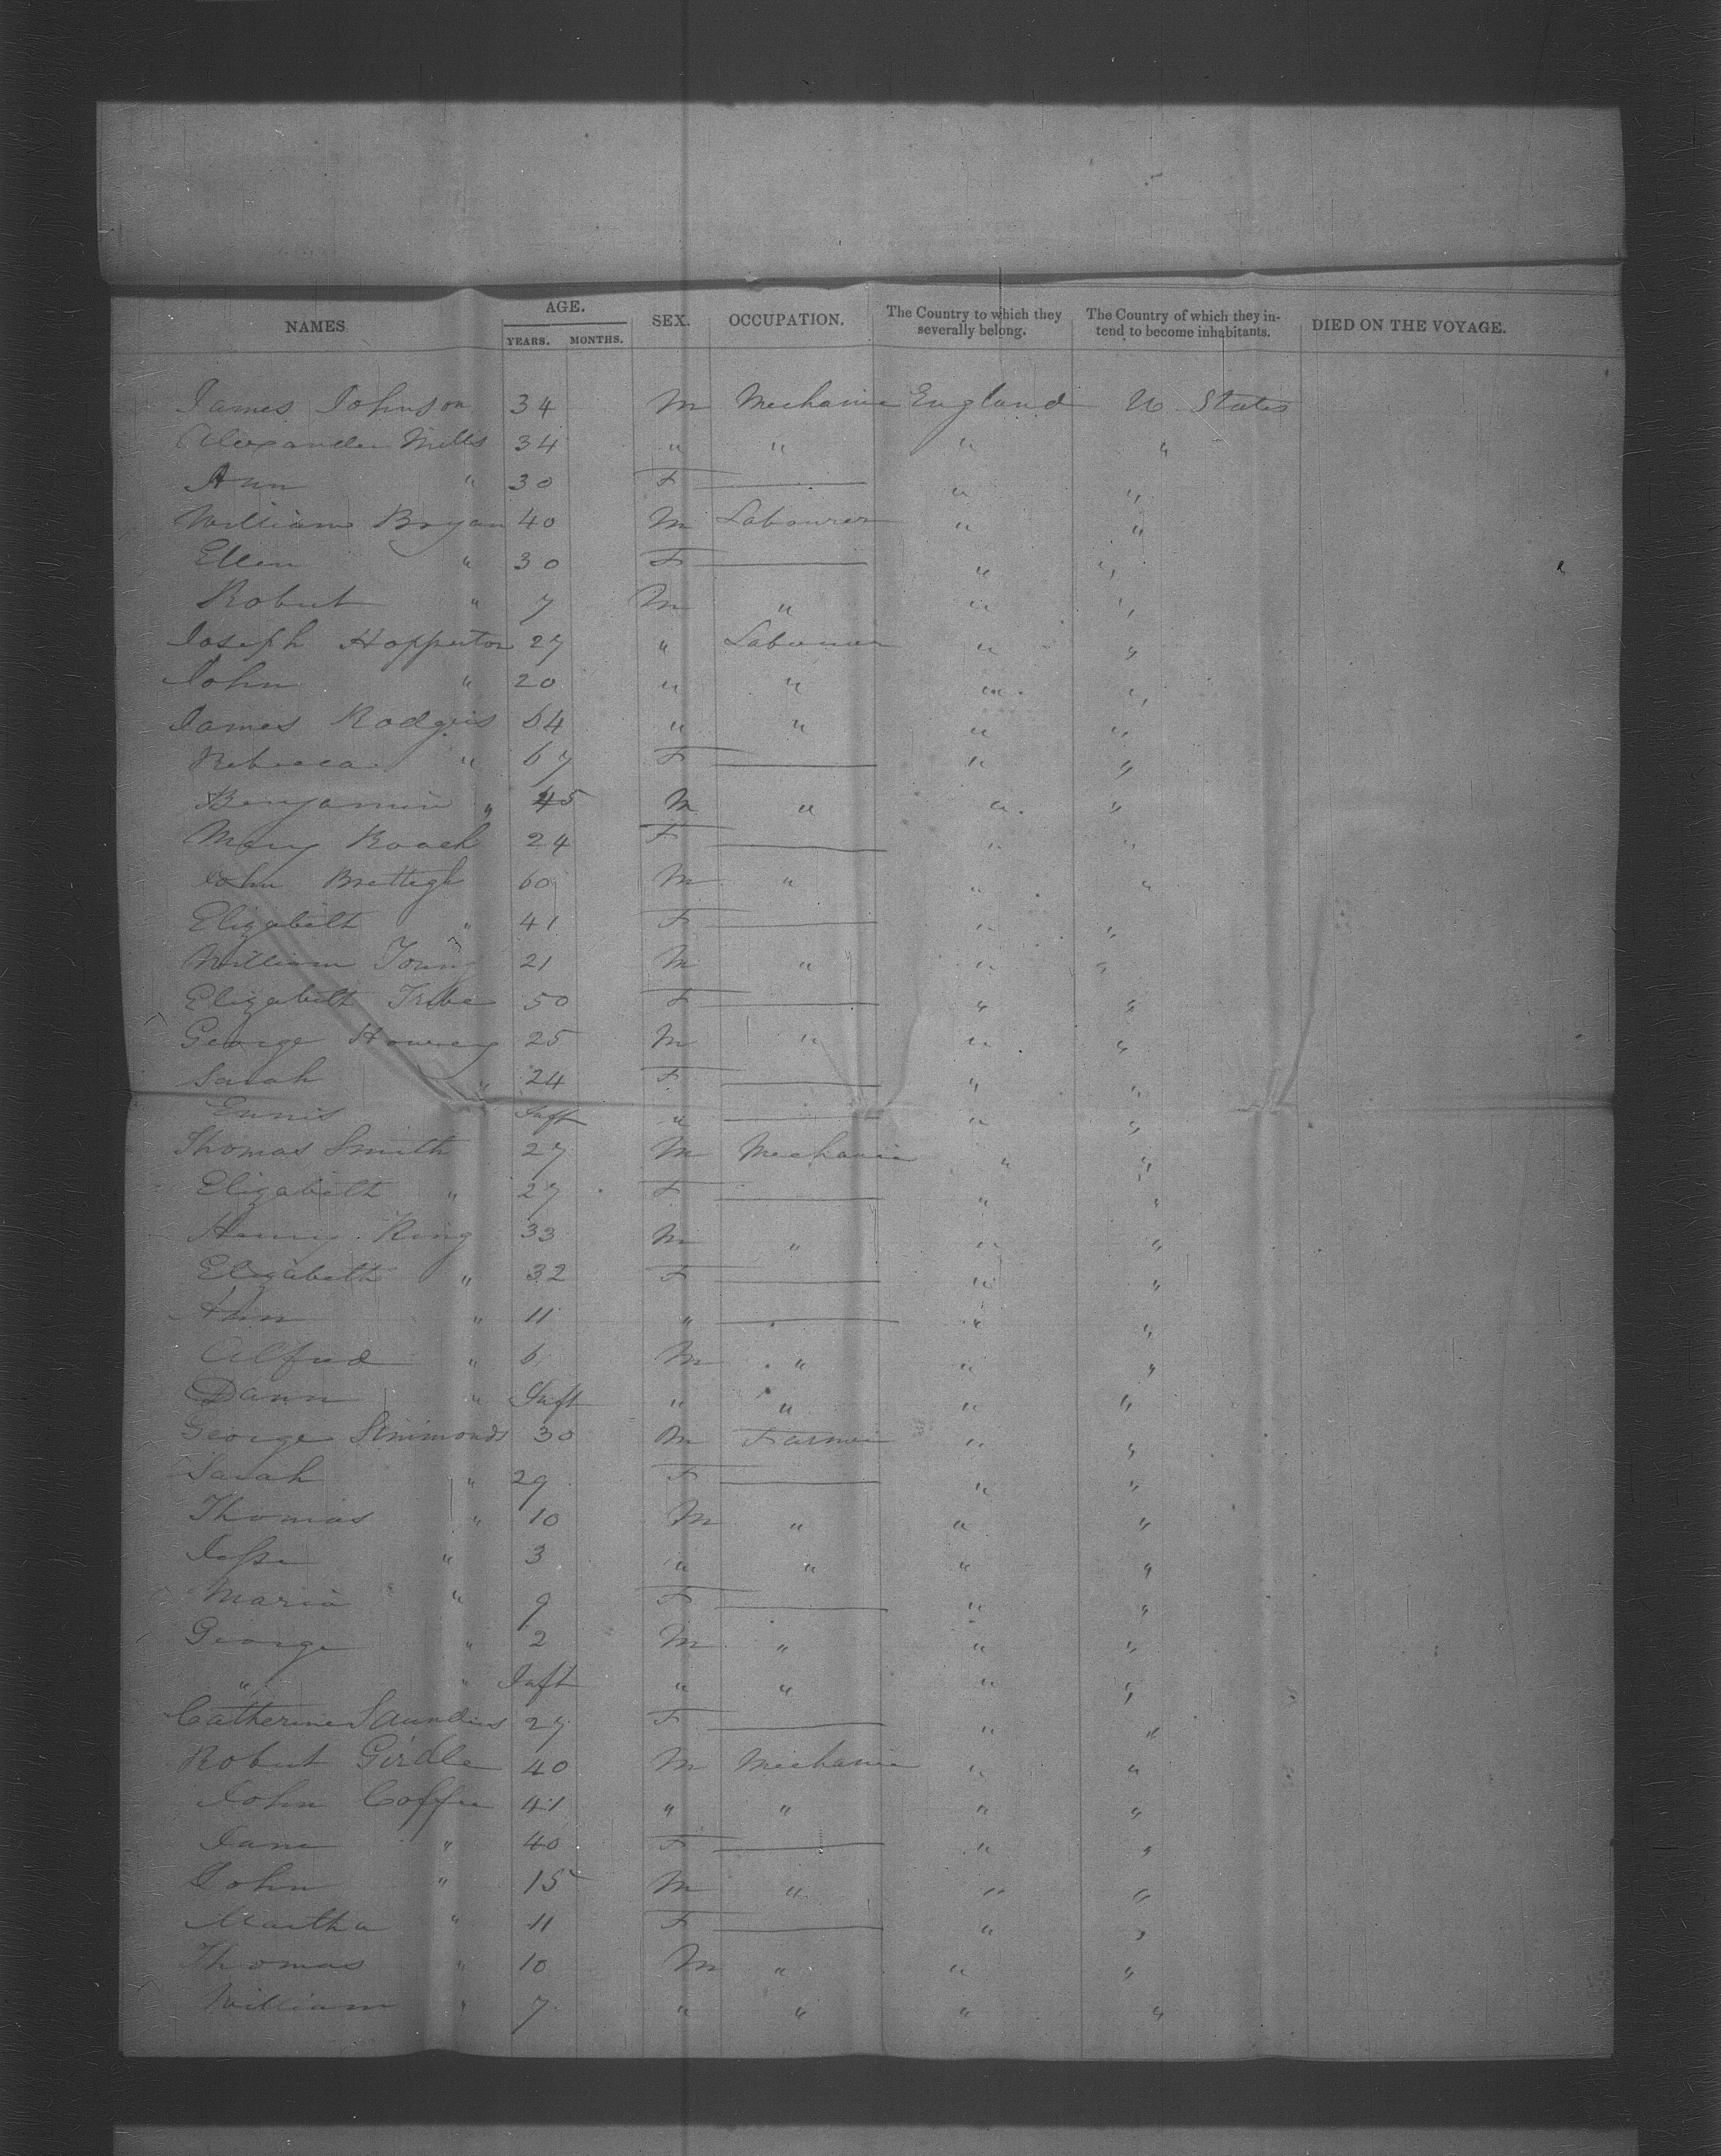 NAMES. AGE. SEX. OCCUPATION. The Country to which they severally belong. The Country of which they in- tend to become inhabitants. DIED ON THE VOYAGE.
YEARS. MONTHS.
James Johnson 34 M Mechanic England U States
Alexander Mills 34 " " " "
Ann " 30 F — " "
William Bryan 40 M Labourer " "
Ellen " 30 F — " "
Robert " 7 M " " "
Joseph Hopperton 27 " Labourer " "
John " 20 " " " "
James Rodgers 64 " " " "
Rebecca " 67 F — " "
Benjamin " 45 M " " "
Mary Roach 24 F — " "
John Brettegh 60 M " " "
Elizabeth " 41 F — " "
William Young 21 M " " "
Elizabeth Tribe 50 F — " "
George 25 M " " "
Sarah " 24 F — " "
Ennis Inft " — " "
Thomas Smith 27 M Mechanic " "
Elizabeth " 27 F — " "
Henry King 33 M " " "
Elizabeth " 32 F — " "
Ann " 11 " — " "
Alfred " 6 M " " "
Dann " Inft " " " "
George Simmonds 30 M Farmer " "
Sarah " 29 F — " "
Thomas " 10 M " " "
Jesse " 3 " " " "
Maria " 9 F — " "
George " 2 M " " "
" " Inft " " " "
Catherine Saunders 27 F — " "
Robert Girdle 40 M Mechanic " "
John Coffee 41 " " " "
Jane " 40 F — " "
John " 15 M " " "
Martha " 11 F — " "
Thomas " 10 M " " "
William " 7 " " " "